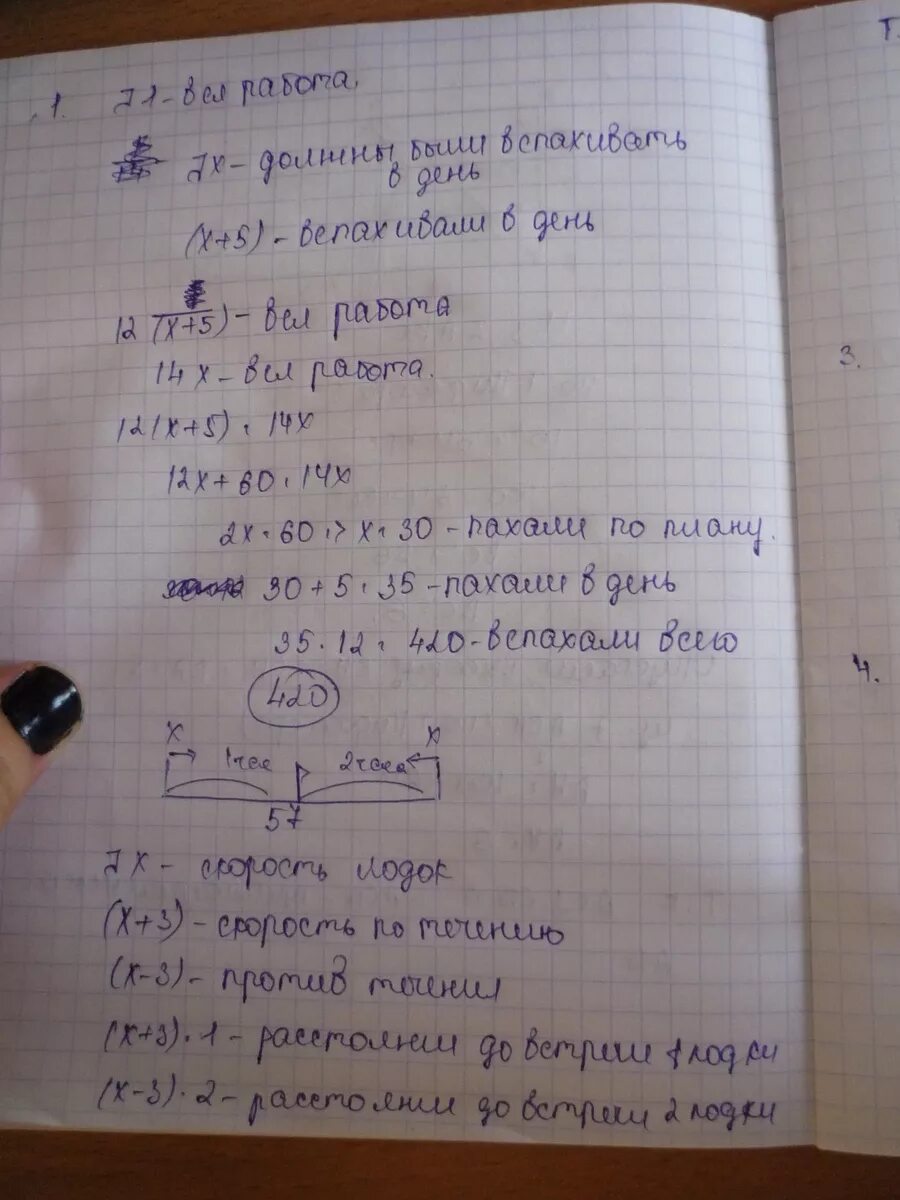 1. ] 1 - вся работа.
] х - должны были вспахивать
в день
(х+5) - вспахивали в день
12 (х+5) - вся работа
14 х - вся работа.
12(х+5) = 14х
12х + 60 = 14х
2х = 60 => х = 30 - пахали по плану.
30 + 5 = 35 - пахали в день
35 · 12 = 420 - вспахали всего
420
х х
1 час 2 часа
57
] х - скорость лодок
(х+3) - скорость по течению
(х-3) - против течения
(х+3) · 1 - расстояние до встречи 1 лодки
(х-3) · 2 - расстояние до встречи 2 лодки
3.
4.